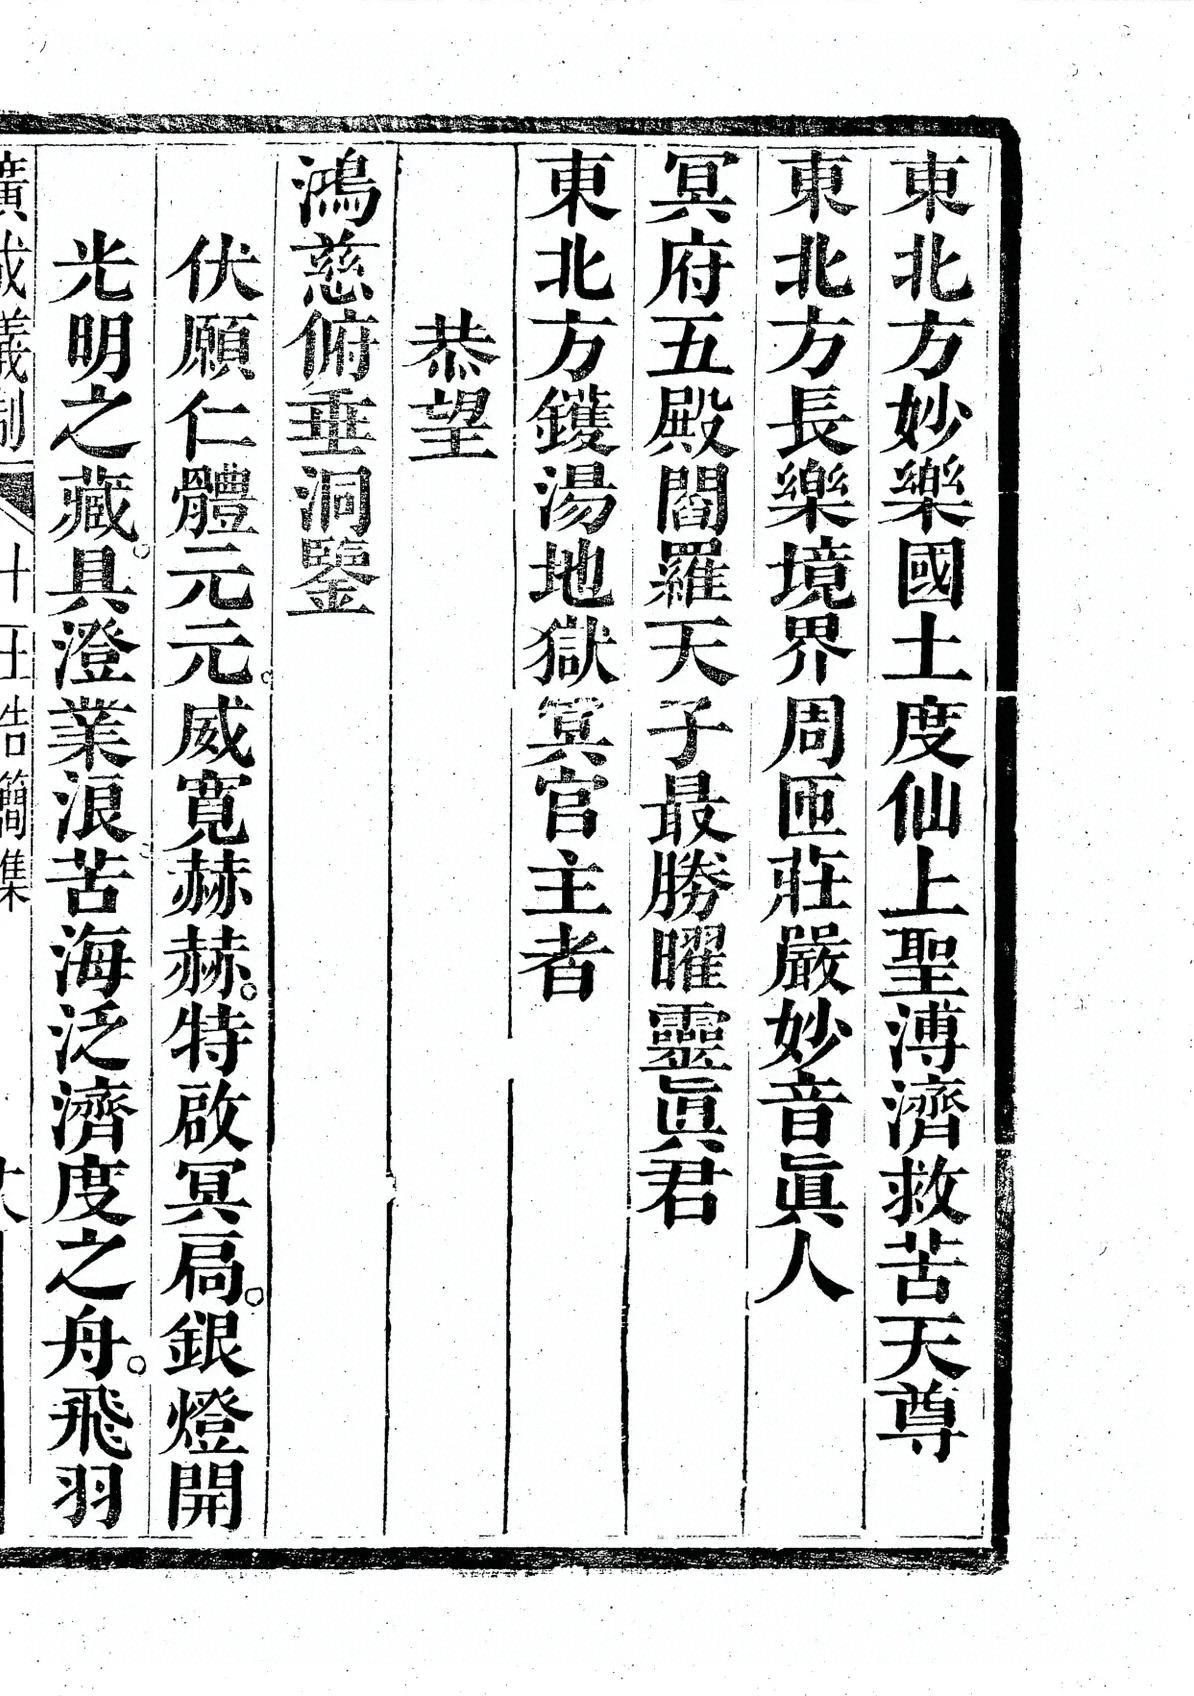 東北方妙樂國土度仙上聖溥濟救苦天尊
東北方長樂境界周匝莊嚴妙音眞人
冥府五殿閻羅天子最勝曜靈眞君
東北方鑊湯地獄冥官主者
恭望
鴻慈俯垂洞鑒
伏願仁體元元。威寬赫赫。特啟冥扃。銀燈開
光明之藏。具澄業浪苦海泛濟度之舟。飛羽
廣成儀制 十王告簡集